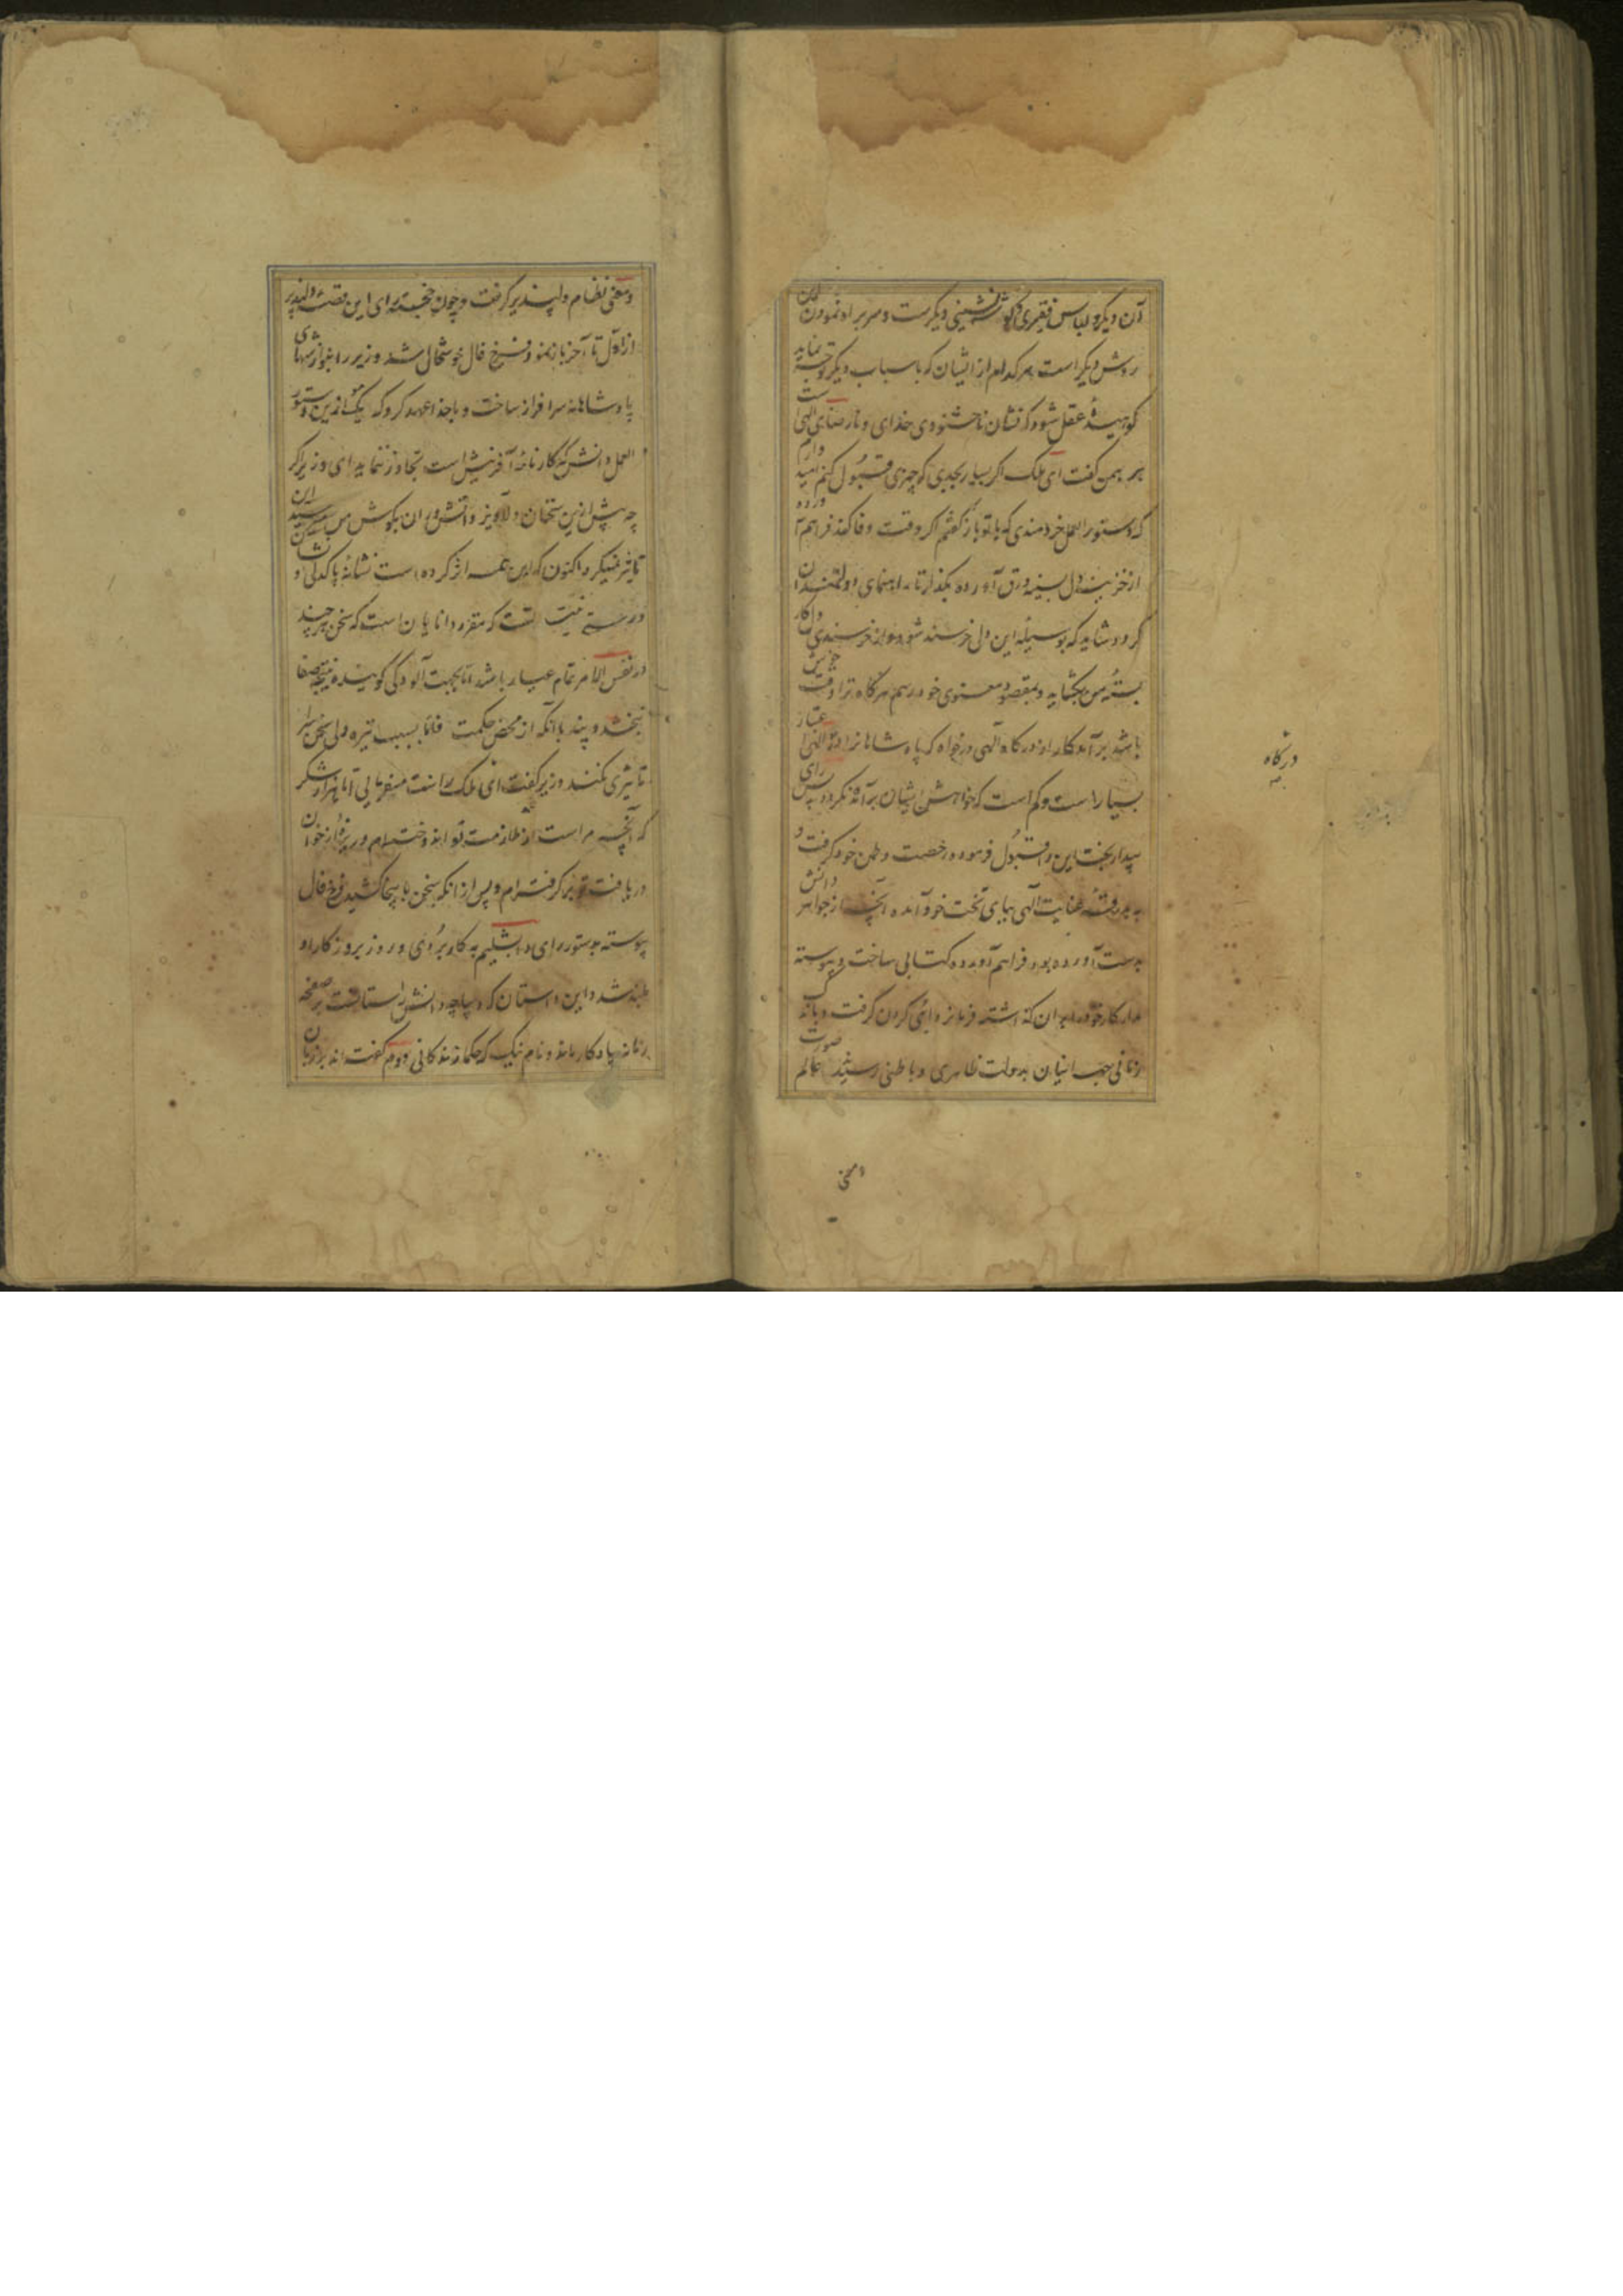 آن دیگر و لباس فقیری و گوشه نشینی دیگرست و سر براه نمودن این
روش دیگر است هر کدام از ایشان که باسباب دیگر توجه نماید
نکوهیدهٔ عقل شود که نشان ناخشنودی خدای و نارضای الهی است
برهمن گفت ای ملک اگر بسیار بجدی که چیزی قبول کنم امید دارم
که دستور العمل خردمندی که با تو باز گفتم اگر وقت وفا کند فراهم آورده
از خزینه دل بسینه ورق آورده بگذار تا راهنمای دولتمندان
گردد شاید که بوسیله این دلی خرسند شود و از خرسندی او کار
بستهٔ من بگشاید و بمقصود معنوی خود رسم هرگاه ترا وقت خوش
باشد برآمد کار از درگاه الهی درخواه که پادشاهانرا درگاه الهی اعتبار
بسیار است و کم است که خواهش ایشان برآمد نکرده پس رای
بیدار بخت این را قبول فرموده رخصت وطن خود گرفت و
به بدرقهٔ عنایت الهی بپای تخت خود آمده آنچه از جواهر دانش
بدست آورده بود فراهم آورده کتابی ساخت و پیوسته
مدار کار خود بران گذاشته فرمانروائی کردن گرفت و باندک
زمانی جهانیان بدولت ظاهری و باطنی رسیدند عالم صورت
درگاه
به
و معنی نظام دلپذیر گرفت و چون خجسته رای این قصه دلپذیر
از اول تا آخر باز نمود فرخ فال خوشحال شد و وزیر را بنوازشهای
پادشاهانه سرافراز ساخت و باخدا عهد کرد که یکموی ازین دستور
العمل دانش که کارنامهٔ آفرینش است تجاوز ننماید ای وزیر اگر
چه پیش ازین سخنان دلاویز دانشوران بگوش من میرسید
تاثیر نمیکرد اکنون که این همه اثر کرده است نشانهٔ پاکدلی و
درستی نیت تست که مقرر دانایان است که سخن هر چند
در نفس الامر تمام عیار باشد اما بجهت آلودگی گوینده نتیجه صفا
نبخشد و پند باآنکه از محض حکمت فاما بسبب تیره دلی سخن سرا
تاثیری نکند وزیر گفت ای ملک راست میفرمایی اما هزار شکر
که آنچه مراست از ملازمت تو اندوخته ام و ریزهٔ از خوان
دریافت تو برگرفته ام و پس از انکه سخن باینجا کشید فرخ فال
پیوسته بدستور رای دابشلیم به کار بردی و روز بروز کار او
بلند شد و این داستان که دیباچه دانش راستانست بر صفحه
زمانه یادگار ماند و نام نیک که حکما زندگانی دوم گفته اند بر زبان